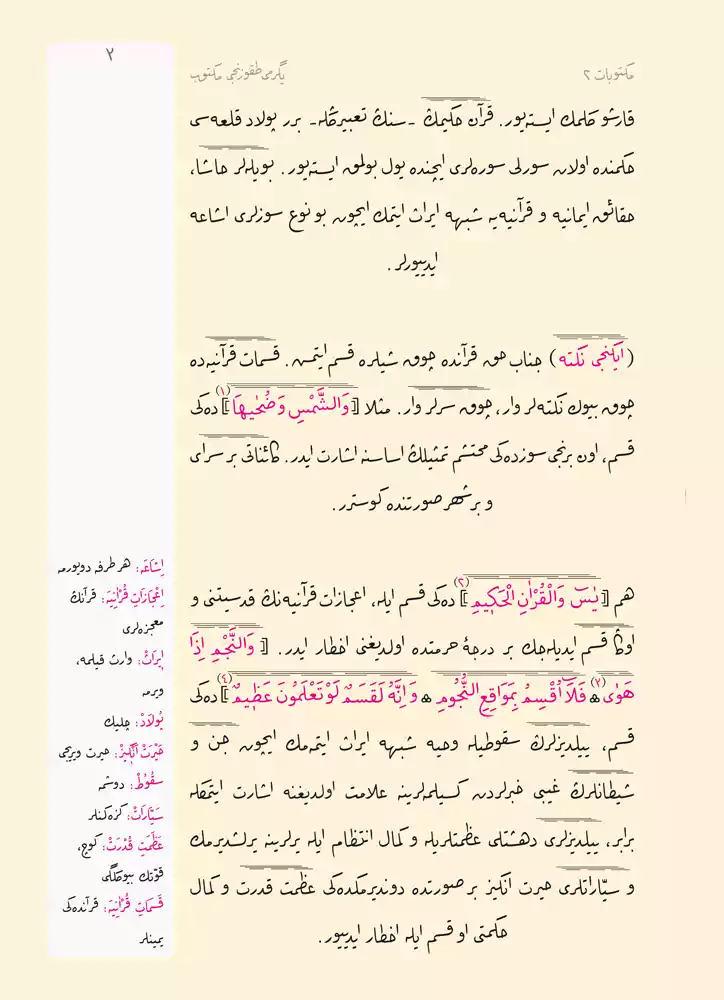 مكتوبات ٢
يگرمی طقوزنجی مكتوب
٢
قارشو گلمك ايسته‌يور. قرآن حكيمڭ -سنڭ تعبيرڭله- برر پولاد قلعه‌سی
حكمنده اولان سورلی سوره‌لری ايچنده يول بولمق ايسته‌يور. بويله‌لر حاشا،
حقائق ايمانيه و قرآنيه‌يه شبهه ايراث ايتمك ايچون بو نوع سوزلری اشاعه
ايدييورلر.
(ايكنجی نكته) جناب حق قرآنده چوق شيلره قسم ايتمش. قسمات قرآنيه‌ده
چوق بيوك نكته‌لر وار، چوق سرلر وار. مثلا [وَالشَّمْسِ وَضُحٰيهَا](١) ده‌كی
قسم، اون برنجی سوزده‌كی محتشم تمثيلڭ اساسنه اشارت ايدر. كائناتی بر سرای
و بر شهر صورتنده گوسترر.
هم [يٰسٓ وَالْقُرْاٰنِ الْحَكِيمِ](٢) ده‌كی قسم ايله، اعجازات قرآنيه‌نڭ قدسيتنی و
اوڭا قسم ايديله‌جك بر درجۀ حرمتده اولديغنی اخطار ايدر. [وَالنَّجْمِ اِذَا
هَوٰى(٣) ۞ فَلَٓا اُقْسِمُ بِمَوَاقِعِ النُّجُومِ ۞ وَاِنَّهُ لَقَسَمٌ لَوْ تَعْلَمُونَ عَظِيمٌ](٤) ده‌كی
قسم، ييلديزلرڭ سقوطيله وحيه شبهه ايراث ايتمه‌مك ايچون جن و
شيطانلرڭ غيبی خبرلردن كسيلمه‌لرينه علامت اولديغنه اشارت ايتمكله
برابر، ييلديزلری دهشتلی عظمتلريله و كمال انتظام ايله يرلرينه يرلشديرمك
و سيّاراتلری حيرت انگيز بر صورتده دونديرمكده‌كی عظمت قدرت و كمال
حكمتی او قسم ايله اخطار ايدييور.
اِشَاعَه: هر طرفه دويورمه
اِعْجَازَاتِ قُرْاٰنِيَه: قرآنڭ
معجزه‌لری
اِيرَاثْ: وارث قيلمه،
ويرمه
پُولَادْ: چليك
حَيْرَتْ اَنْگِيزْ: حيرت ويريجی
سقُوطْ: دوشمه
سَيَّارَاتْ: گزه‌گنلر
عَظَمَتِ قُدْرَتْ: گوچ،
قوّتڭ بيوكلگی
قَسَمَاتِ قُرْاٰنِيَه: قرآنده‌كی
يمينلر